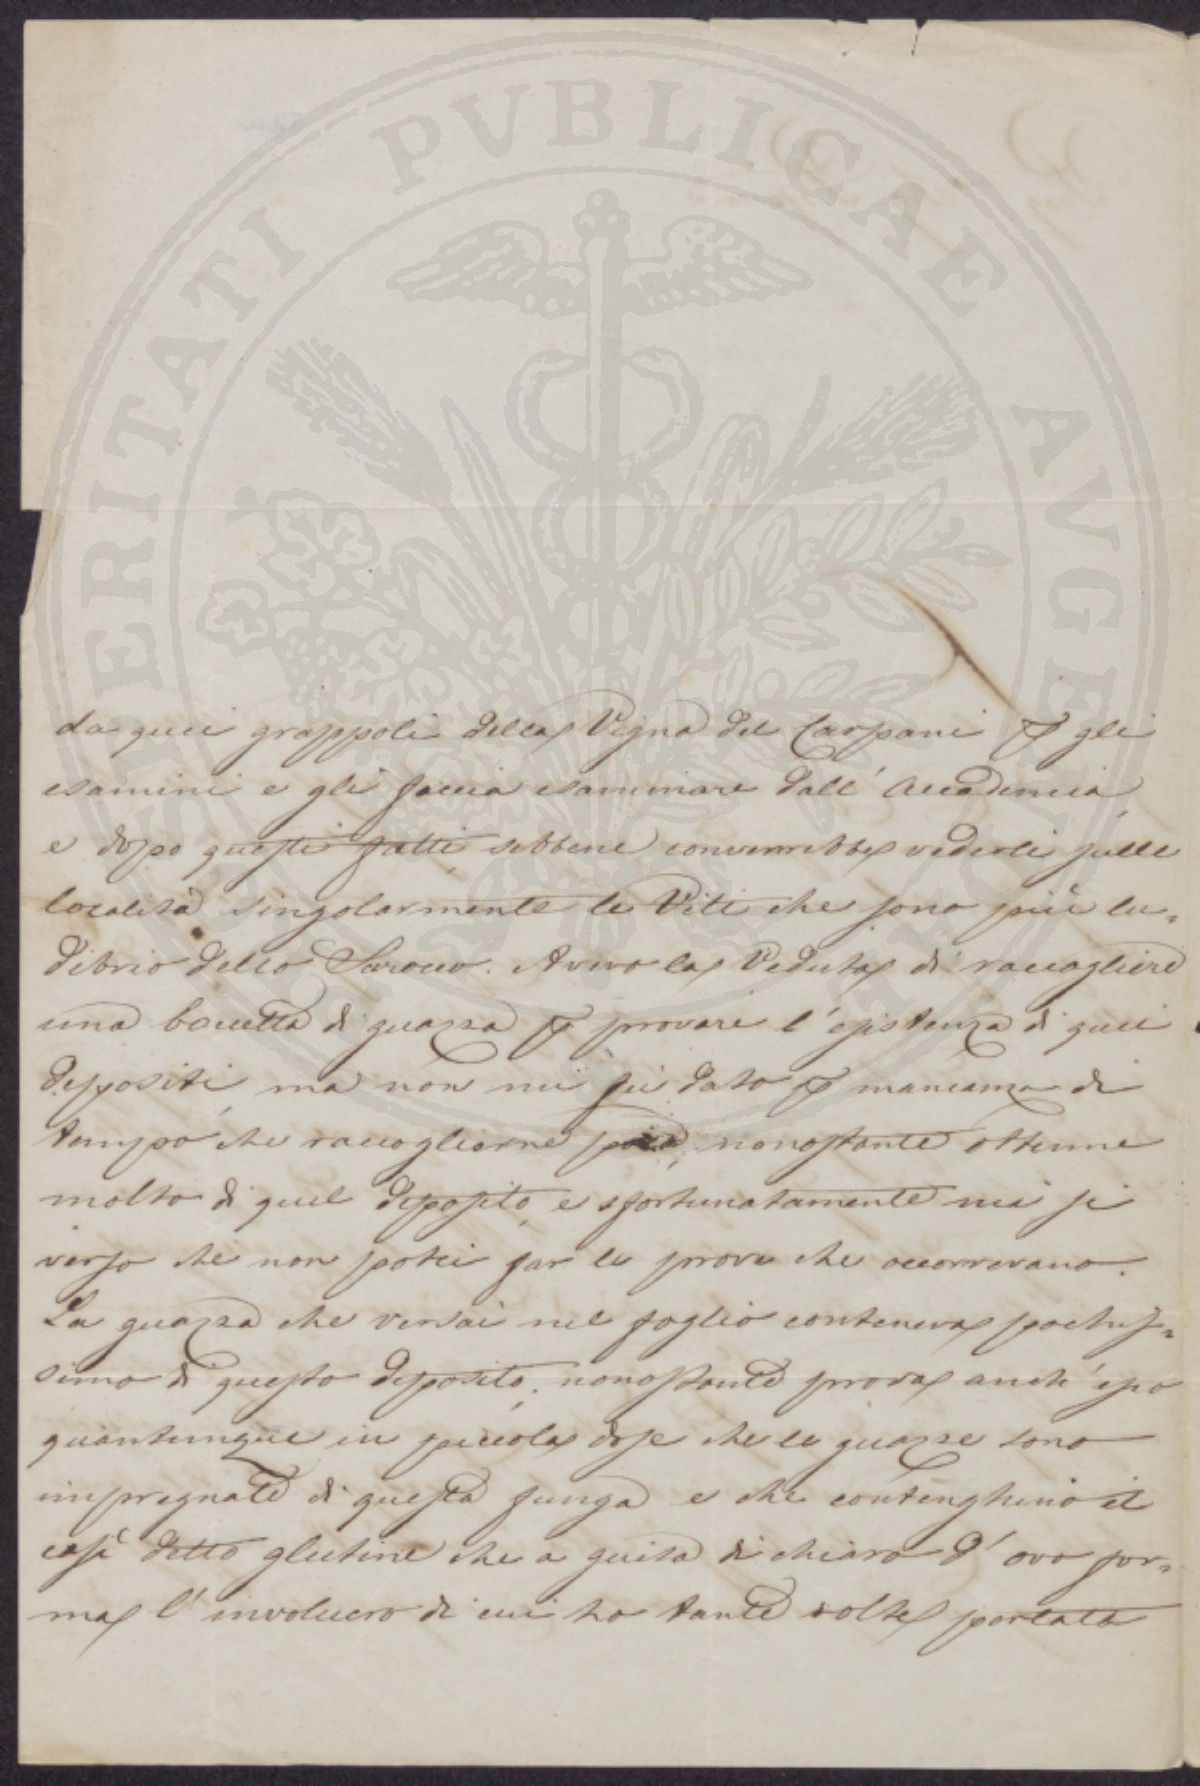 PROSPERITATI PVBLICAE AVGENDAE
da quei grappoli della Vigna del Carpani p gli
esamini e gli faccia esaminare dall' Accademia
e dopo questi fatti, sebbene converrebbe vederli sulle
località singolarmente le Viti che sono più lu=
dibrio dello Sirocco. Avevo la Veduta di raccogliere
una boccetta di guazza p provare l'esistenza di quei
depositi, ma non mi fù dato p mancanza di
tempo che raccogliorne poca, nonostante ottenne
molto di quel deposito, e sfortunatamente mi si
verso che non potei far le prove che occorrevano.
La guazza che versai nel foglio conteneva pochis=
simo di questo deposito, nonostante prova anch'esso
quantunque in piccola dose che le guazze sono
impregnate di questa funga e che contenghino il
così detto glutine che a guisa di chiara d'ovo for=
ma l'involucro di cui ho tante volte portato